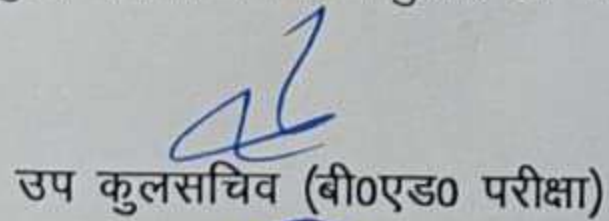 उप कुलसचिव (बी०एड० परीक्षा)